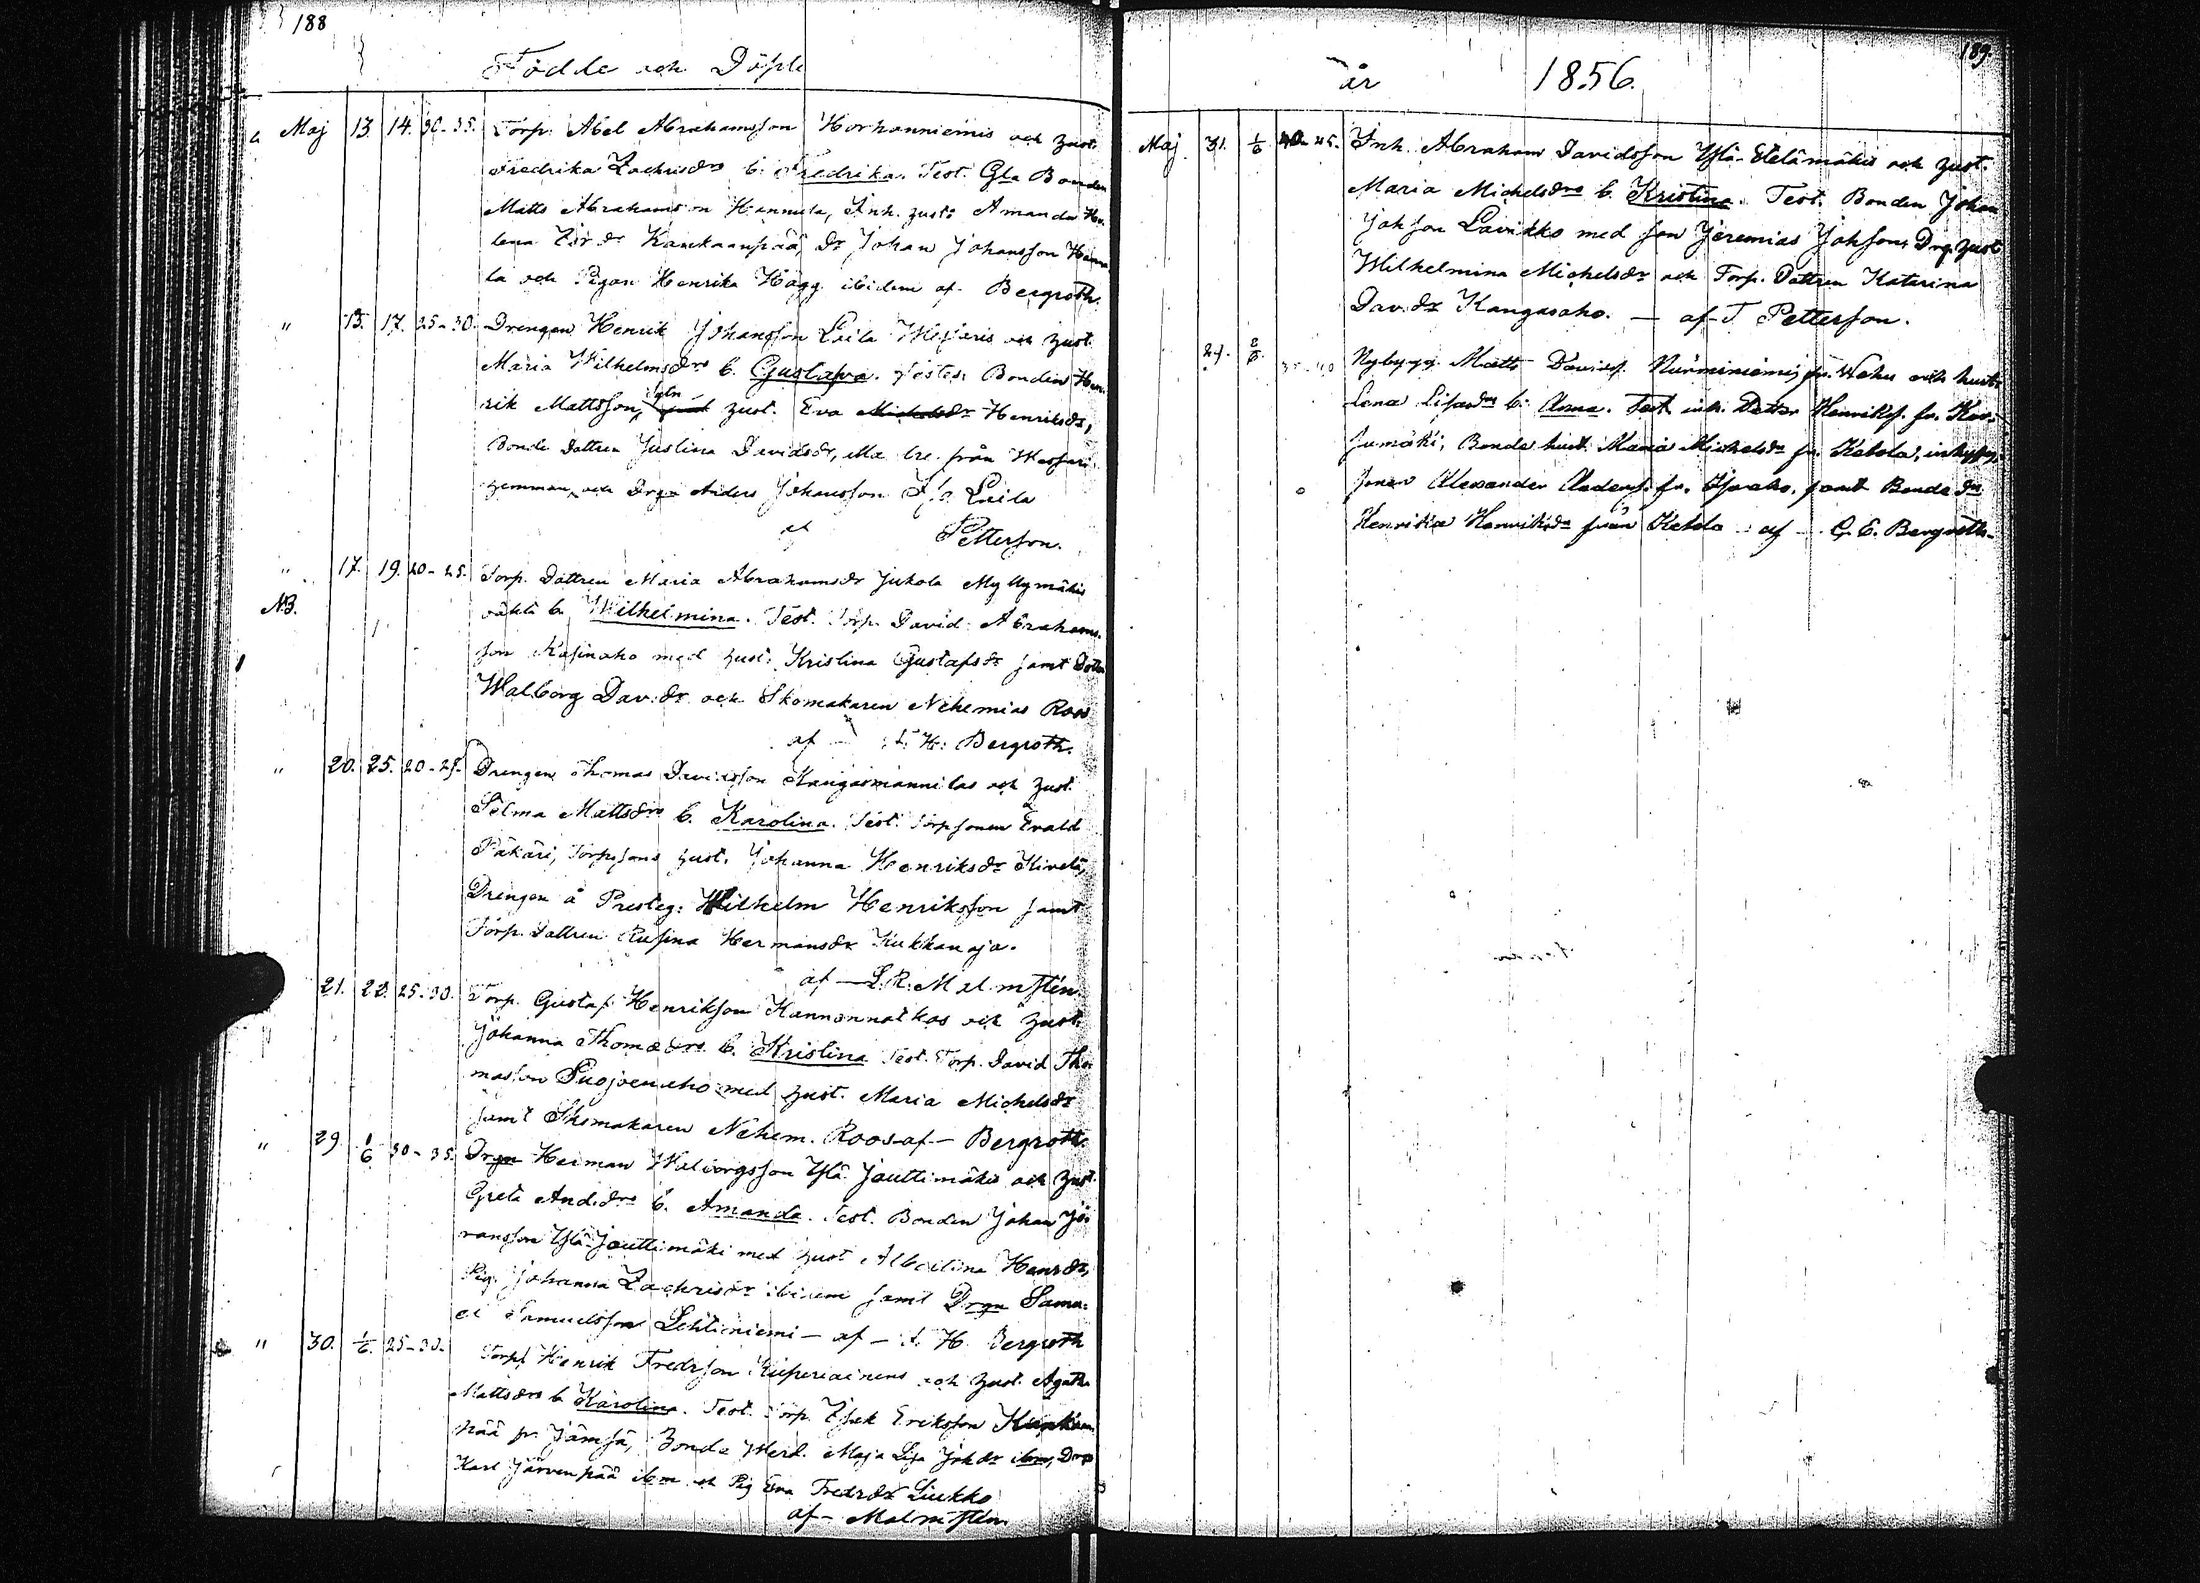 188
Födde och Döpte
Maj 13. 14. 30-35. Torp. Abel Abrahamsson Horhanniemis och Hust.
Fredrika Zachrisdrs b. Fredrika. Test. Gla Bonden
Matts Abrahamson Hannula, Inh. Hust: Amanda He-
lena dr Kankaanpää, Dr Johan Johansson Hannu
la och Pigan Henrika Hägg ibidem af Bergroth.
" 15. 17. 25-30. Drengen Henrik Johansson Laila och Hust.
Maria Wilhelmsdrs b. Gustafva. Testes: Bonden Hen
rik Mattsson, Hust. Eva Michelsdr Henriksdr,
Bonde Dottren Justina Davidsdr, från
och Drgn Anders Johansson Laila
af Petterson.
" 17. 19. 20-25. Torp. Dottren Maria Abrahamsdr Jukola Myllymäkis
NB. oäkta b. Wilhelmina. Test. Torp. David Abrahams-
son Kasinaho med Hust: Kristina Gustafsdr samt Dottr
Walborg Dav.dr och Skomakaren Nehemias Roos
af H: Bergroth.
" 20. 25. 20-25. Drengen Thomas Davidsson Kangasmannilas och Hust.
Selma Mattsdrs b. Karolina. Test. Torpsonen Evald
Päkäri, Torpsons Hust. Johanna Henriksdr Kivelä,
Drengen å Presteg: Wilhelm Henriksson samt
Torp. Dottren Rufina Hermansdr Kukkanoja.
af — L. R. Malmsten.
21. 22. 25-30. Torp. Gustaf Henrikson Kannonnatkos och Hust.
Johanna Thomædrs b. Kristina Test. Torp. David Tho-
masson Suojoenaho med Hust. Maria Michelsdr
samt Skomakaren Nehem. Roos af — Bergroth.
" 29 1/6 30-35. Drgn Herman Walborgsson Ylä Jouttimäkis och Hust.
Greta And.drs b. Amanda. Test. Bonden Johan Jö-
ransson Ylä-Jouttimäki med Hust Albertina Henrdr,
Pig. Johanna Zachrisdr ibidem samt Drgn Samu-
el Samuelsson Lehtiniemi — af — H. Bergroth
" 30. 1/6. 25-30. Torp. Henrik Fredrsson och Hust. Agata
Mattsdrs b. Karolina. Test. Torp. Isak Eriksson
pää fr. Jämsä, Bonde Maja Lisa Johdr ibm, Drg
Karl Järvenpää ibm och Pig Eva Fredrdr Liukko
af — Malmsten.
189.
år 1856.
Maj 31. 1/6 40-45. Inh. Abraham Davidsson Ylä-Etelämäkis och Hust.
Maria Michelsdrs b. Kristina. Test. Bonden Johan
Johsson Lavikko med son Jeremias Johsson, Drg. Hust
Wilhelmina Michelsdr och Torp. Dottren Katarina
Dav.dr Kangasaho. — af T Petterson.
29. 2/6. 35-40 Nybygg. Matts Davids. Nurminiemi, fr. och hust.
Lena Lisa b: Anna. Test. inh. Henriks. fr. Kor-
sumäki, Bonde hust. Maria Michelsdr fr. Ketola,
sonen Alexander Anders. fr. samt Bonde dr
Henrika Henriksdr från Ketola af — G. E. Bergroth.